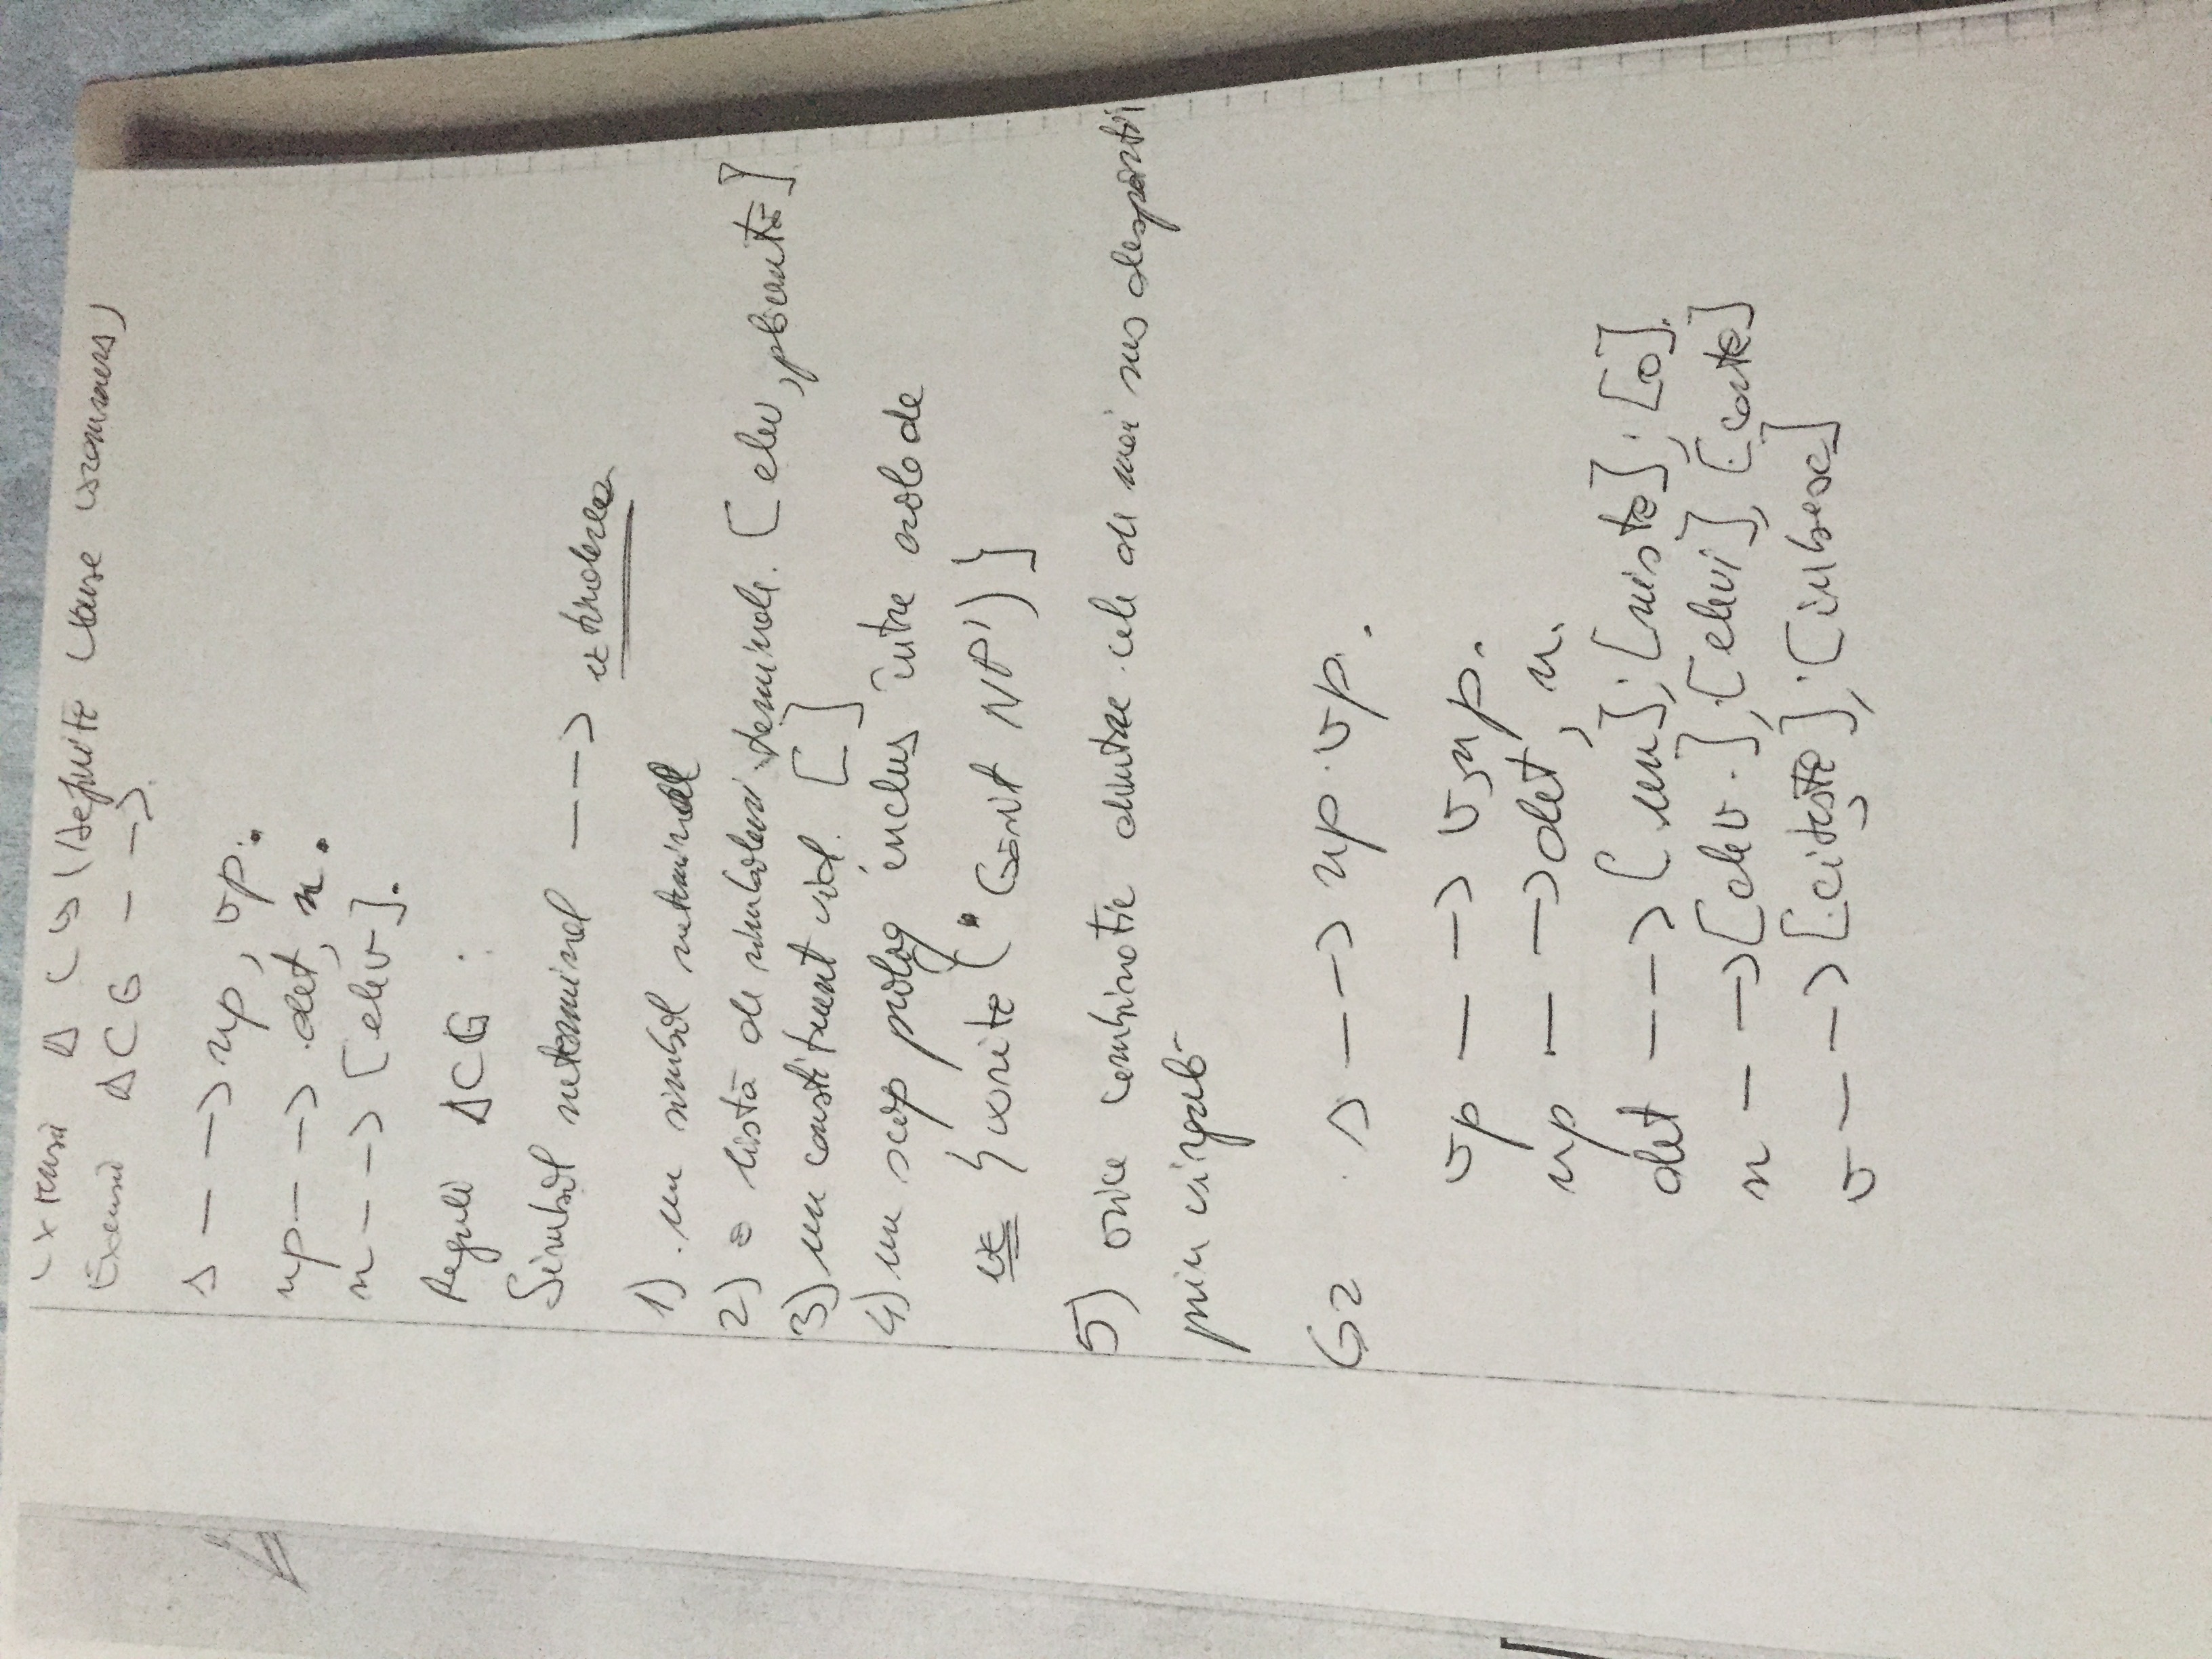 Extensii DCG (Definite Clause Grammars)
Extensii DCG - ->.
s - -> np, vp.
np - -> det, n.
n - -> [elev].
Reguli DCG :
Simbol neterminal - - -> extinderea
1) un simbol neterminal
2) o listă de simboluri terminale. [elev, plicuntă]
3) un constituent vid. []
4) un scop prolog inclus între acolade
ex {write('Găsit NP')}
5) orice combinatie dintre cele de mai sus despărtii
prin virgulă
G2 s - - -> np vp.
vp - -> v, np.
np - -> det, n.
det - - -> [un]; [niste]; [o].
n - -> [elev]; [elevi]; [carte]
v - - -> [citește]; [iubesc]